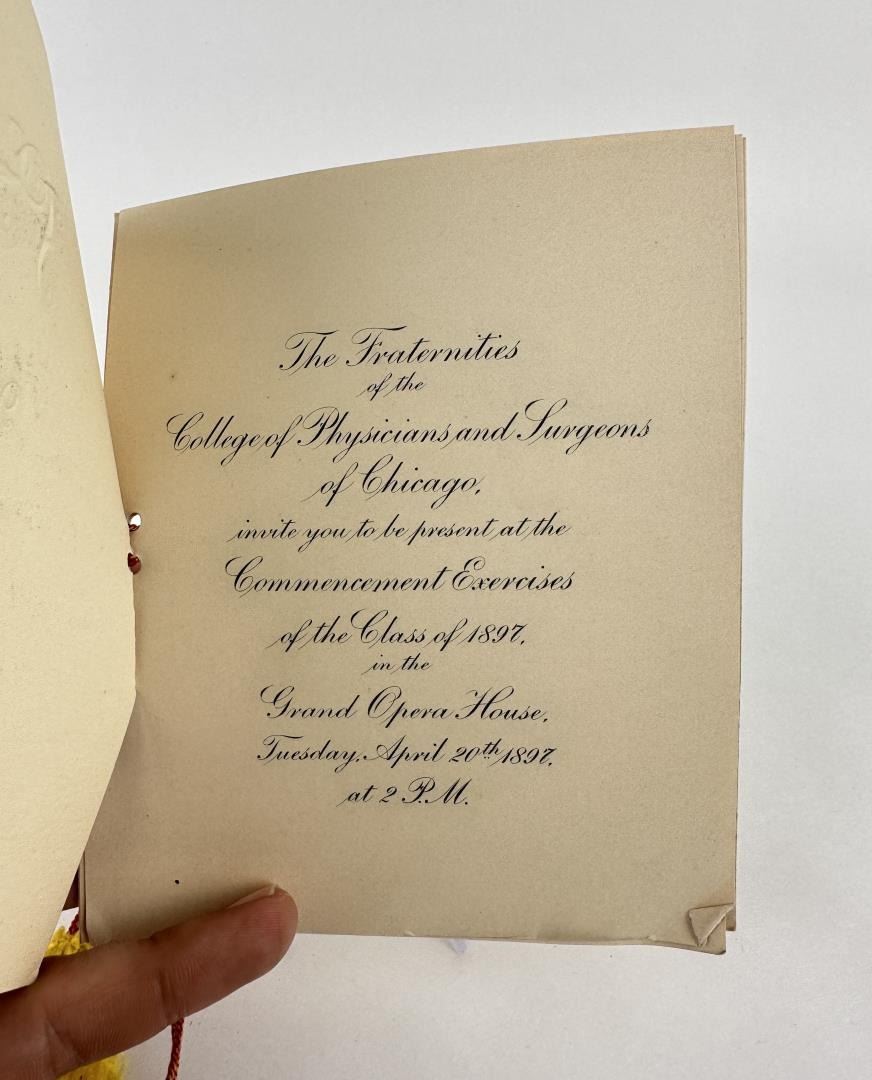 The Fraternities
of the
College of Physicians and Surgeons
of Chicago,
invite you to be present at the
Commencement Exercises
of the Class of 1897,
in the
Grand Opera House,
Tuesday, April 20th 1897,
at 2 P.M.